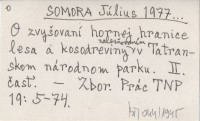 SOMORA Július 1977...
O zvyšovaní hornej hranice
lesa a kosodreviny v Tatran-
skom národnom parku. II.
časť. – Zbor. Prác TNP
19: 5-74.